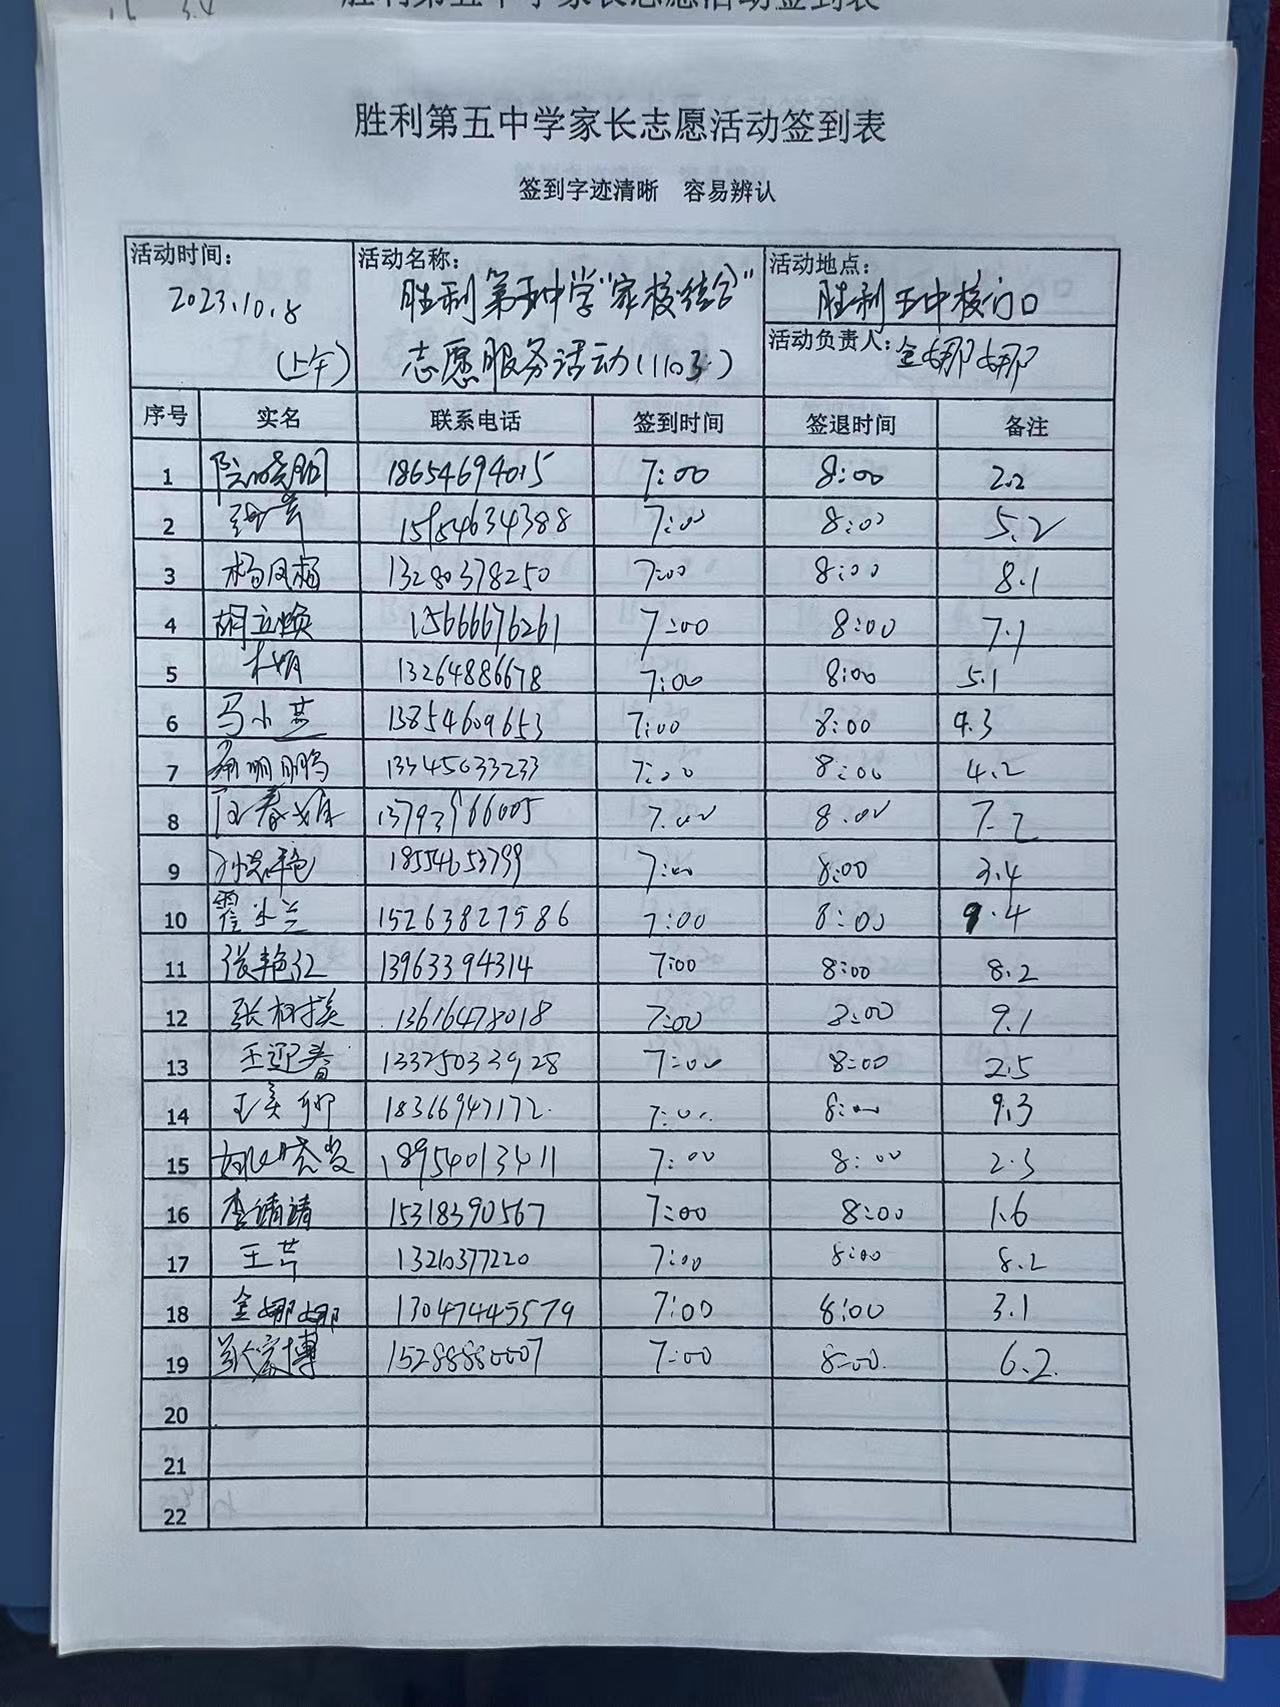 胜利第五中学家长志愿活动签到表
胜利第五中学家长志愿活动签到表
签到字迹清晰 容易辨认
活动时间: 2023.10.8 (上午)
活动名称: 胜利第五中学"家校结合"
志愿服务活动(1103)
活动地点: 胜利五中校门口
活动负责人: 金娜娜
序号 实名 联系电话 签到时间 签退时间 备注
1 18654694015 7:00 8:00 2.2
2 15954634388 7:00 8:00 5.2
3 杨凤梅 13280378250 7:00 8:00 8.1
4 胡立焕 15666676261 7:00 8:00 7.1
5 杜娟 13264886678 7:00 8:00 5.1
6 马小燕 13854609653 7:00 8:00 4.3
7 7:00 8:00 4.2
8 13793966005 7:00 8:00 7.2
9 18554653799 7:00 8:00 3.4
10 霍小兰 15263827586 7:00 8:00 9.4
11 张艳红 13963394314 7:00 8:00 8.2
12 张相英 13616478018 7:00 8:00 9.1
13 王迎春 13325033928 7:00 8:00 2.5
14 王美卿 18366947172 7:00 8:00 9.3
15 18954013411 7:00 8:00 2.3
16 李靖靖 15318390567 7:00 8:00 1.6
17 王芹 13210377220 7:00 8:00 8.2
18 金娜娜 13047445579 7:00 8:00 3.1
19 张家博 15288880007 7:00 8:00 6.2
20
21
22